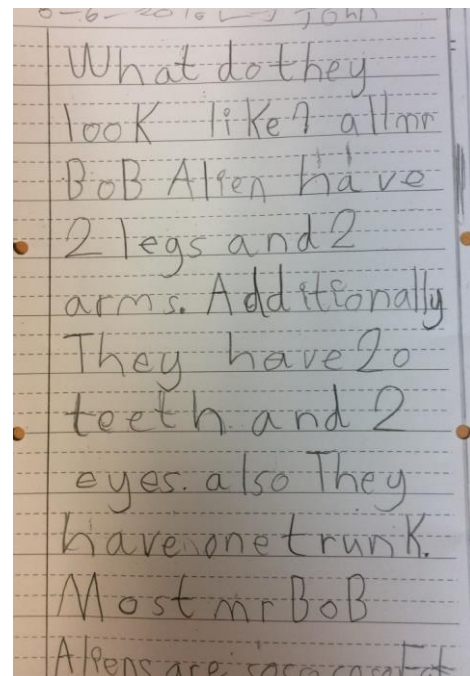 John
What do they
look like? all mr
BoB Alien have
2 legs and 2
arms. Additionally
They have 20
teeth and 2
eyes. also They
have one trunk.
Most mr BoB
Aliens are